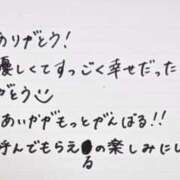 ありがとう!
優しくてすっごく幸せだった
がとう
あいががもっとがんばる!!
呼んでもらえるの楽しみにし